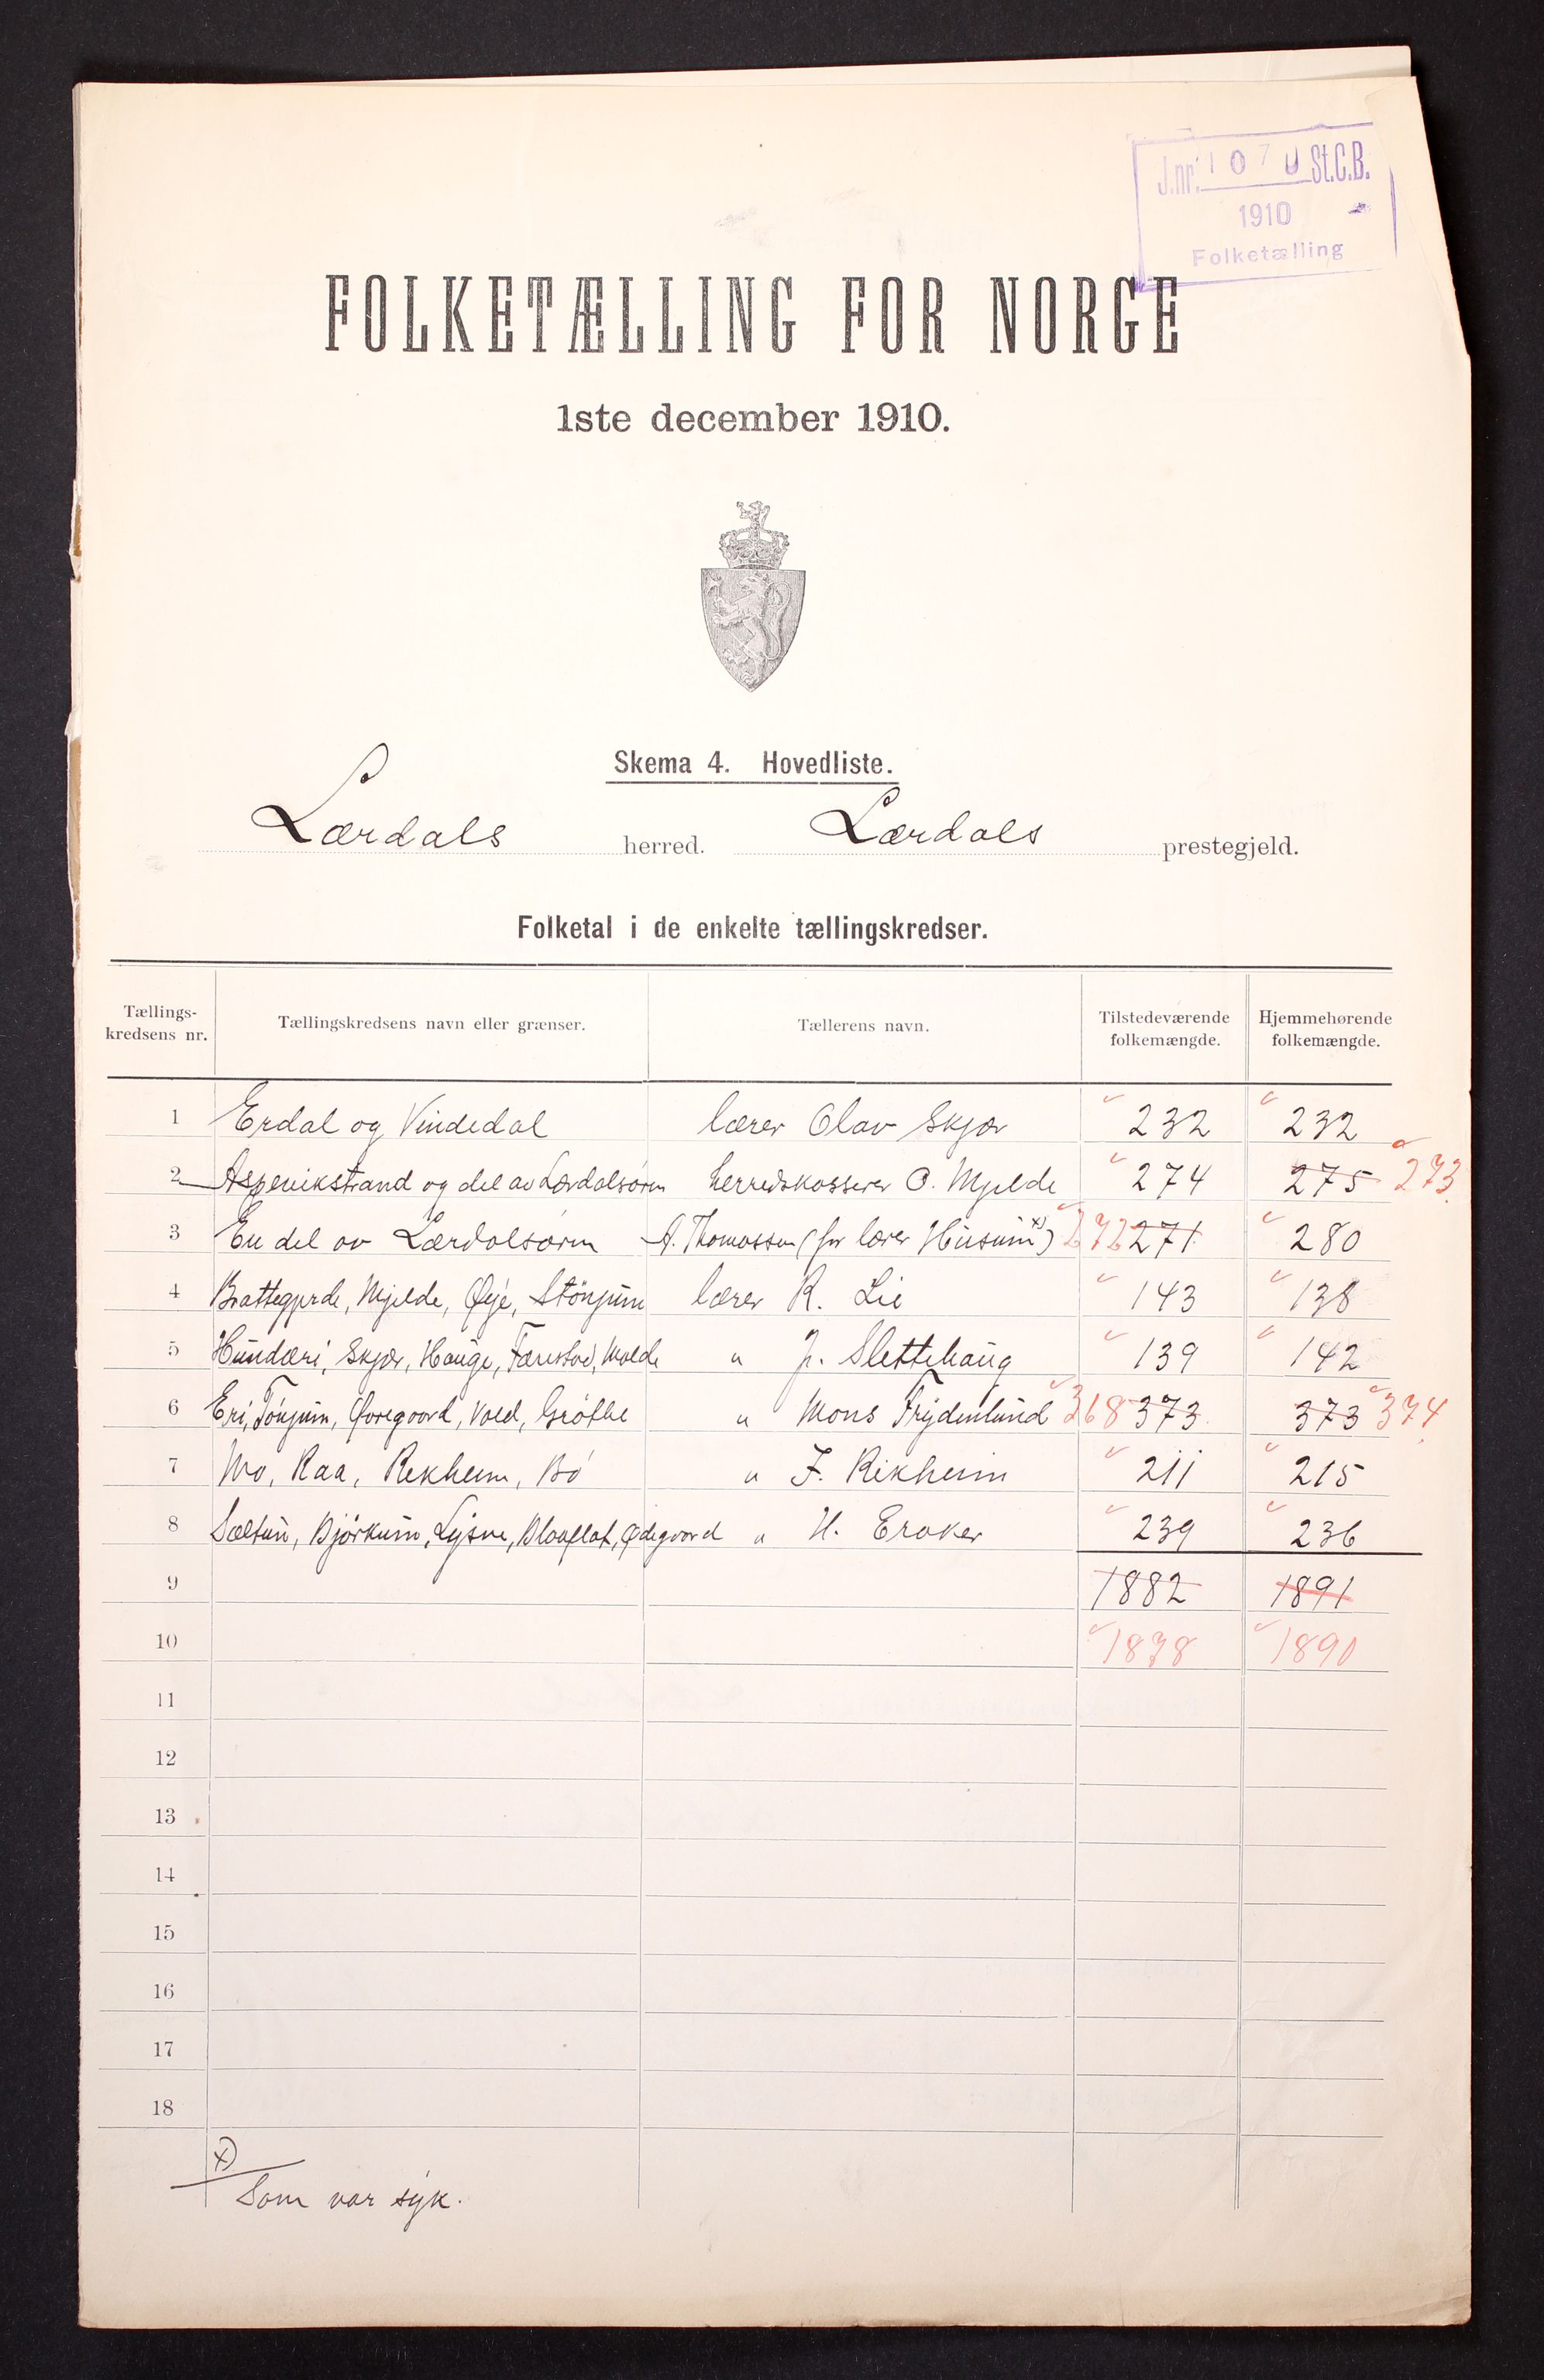 J.nr. 1070 St.C.B.
1910
Folketælling
FOLKETÆLLING FOR NORGE
1ste december 1910.
Skema 4. Hovedliste.
Lærdals herred. Lærdals prestegjeld.
Folketal i de enkelte tællingskredser.
Tællings-kredsens nr. Tællingskredsens navn eller grænser. Tællerens navn. Tilstedeværende folkemængde. Hjemmehørende folkemængde.
1 Erdal og Vindedal lærer Olav Skjær 232 232
2 Aspevikstrand og del av Lærdalsøren herredskasserer O. Mjelde 274 275 273
3 En del av Lærdalsøren A. Thomassen (for lærer Husum x)) 272 271 280
4 Brattegjerde, Mjelde, Øie, Stönjum lærer R. Lie 143 138
5 Hunderi, Skjær, Hauge, Molde " J. Slettehaug 139 142
6 Eri, Tönjum, Vold, Gröthe " Mons Frydenlund 368 373 373 374
7 Mo, Raa, Rikheim, Bö " J. Rikheim 211 215
8 Sæltun, Björkum, Lysne, Blaaflat, Ødegaard " H. Eraker 239 236
9 1882 1891
10 1878 1890
11
12
13
14
15
16
17
18
x)
Som var syk.